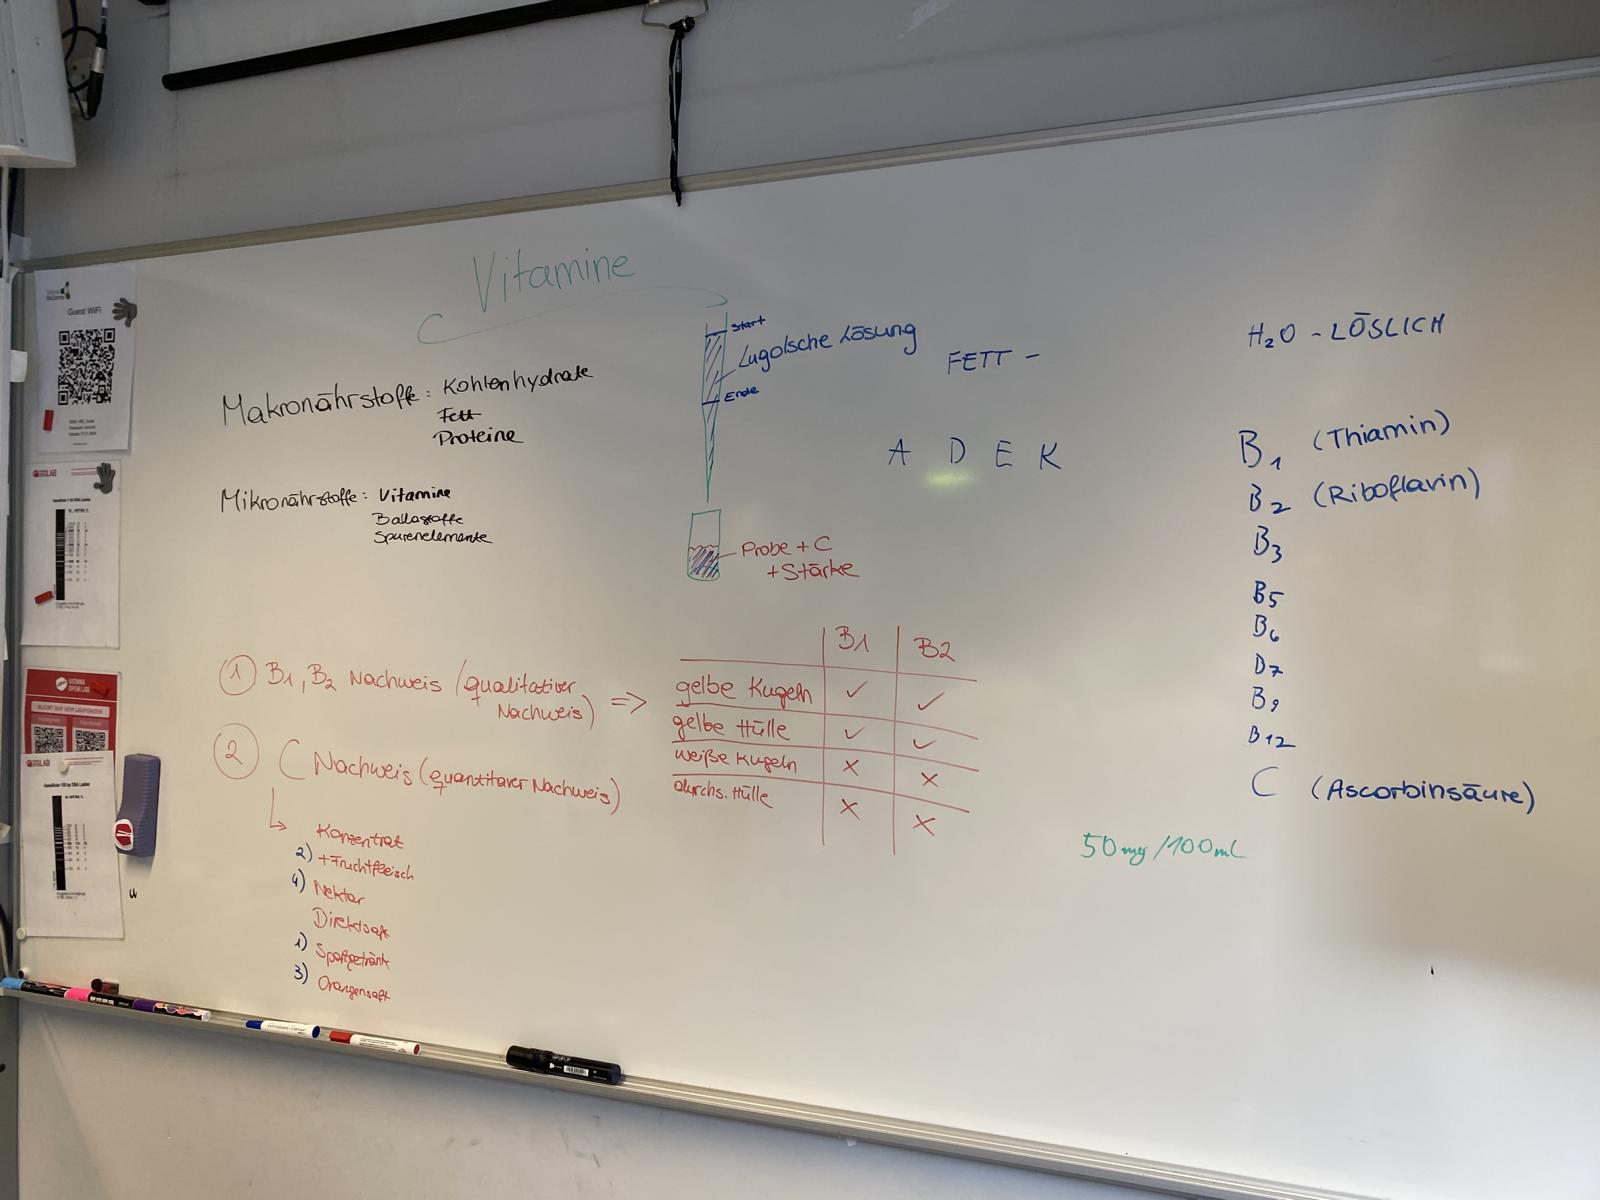 Guest WiFi
LAB
VIENNA
OPEN LAB
LAB
Vitamine
Makronährstoffe: Kohlenhydrate
Fett
Proteine
Mikronährstoffe: Vitamine
Ballastoffe
Spurenelemente
Start
Lugolsche Lösung
Ende
Probe + C
+ Stärke
FETT -
A D E K
H₂O - LÖSLICH
B₁ (Thiamin)
B₂ (Riboflavin)
B₃
B₅
B₆
B₇
B₉
B₁₂
C (Ascorbinsäure)
50mg/100mL
① B₁, B₂ Nachweis (qualitativer
Nachweis) =>
② C Nachweis (quantitaver Nachweis)
Konzentrat
2) + Fruchtfleisch
4) Nektar
Direktsaft
1) Sportgetränk
3) Orangensaft
B1 B2
gelbe Kugeln ✓ ✓
gelbe Hülle ✓ ✓
weiße Kugeln × ×
durchs. Hülle × ×